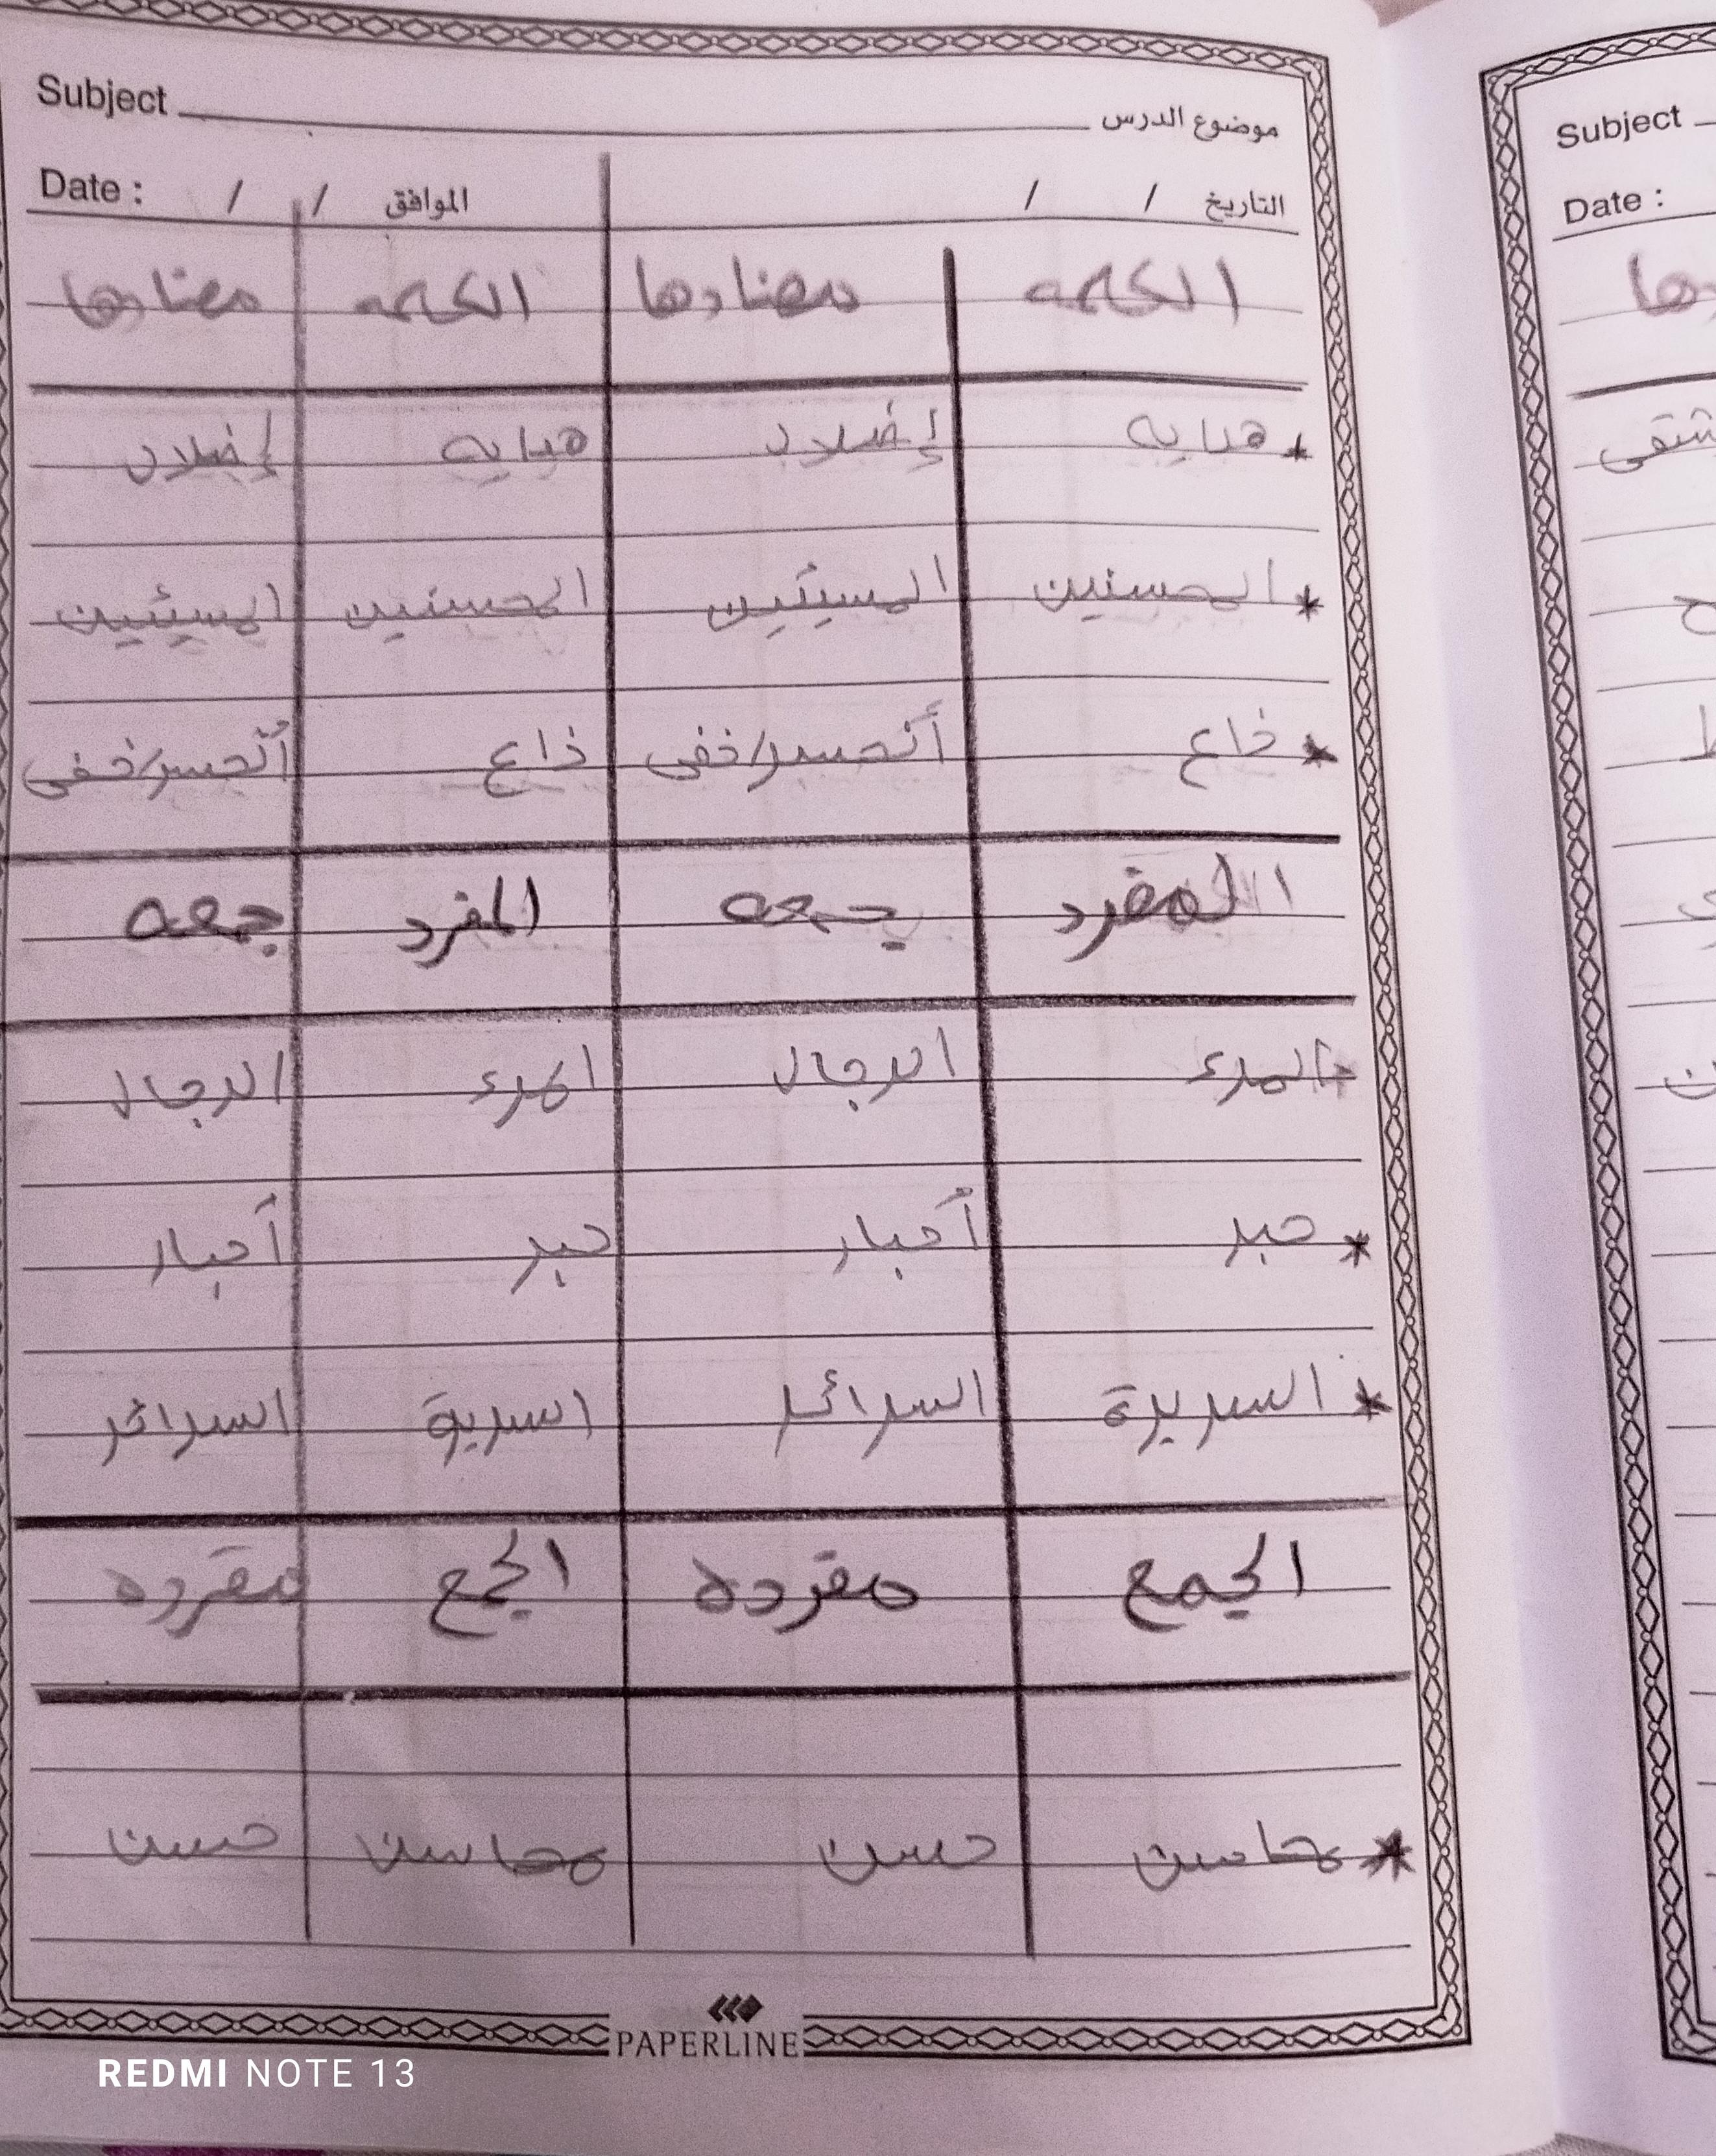 Subject موضوع الدرس
Date : / / الموافق / / التاريخ
الكلمه مضادها الكلمه مضادها
* هدايه إضلال هدايه إضلال
* المحسنين المسيئين المحسنين المسيئين
* ذاع أنحسر/خفى ذاع أنحسر/خفى
المفرد جمعه المفرد جمعه
* المرء الرجال المرء الرجال
* حبر أحبار حبر أحبار
* السريرة السرائر السريرة السرائر
الجمع مفرده الجمع مفرده
* محاسن حسن محاسن حسن
PAPERLINE
REDMI NOTE 13
Subject
Date :